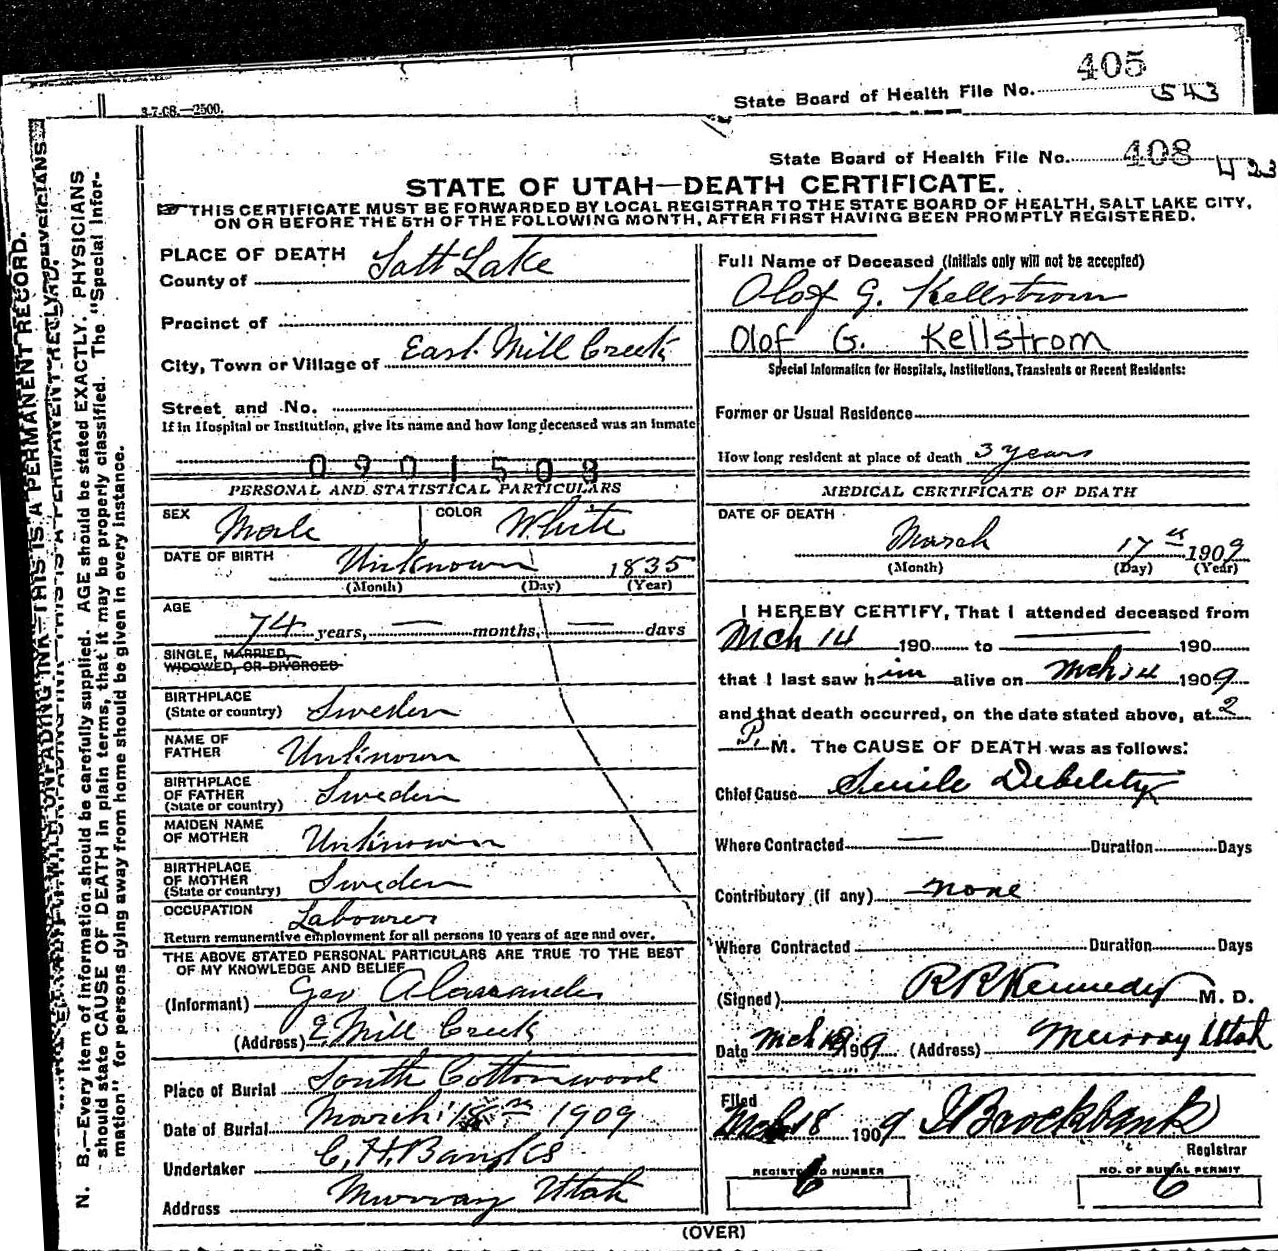 405
3-7-08.—2500.
State Board of Health File No.
543
State Board of Health File No. 408
423
STATE OF UTAH—DEATH CERTIFICATE.
THIS CERTIFICATE MUST BE FORWARDED BY LOCAL REGISTRAR TO THE STATE BOARD OF HEALTH, SALT LAKE CITY,
ON OR BEFORE THE 5TH OF THE FOLLOWING MONTH, AFTER FIRST HAVING BEEN PROMPTLY REGISTERED.
PLACE OF DEATH
County of Salt Lake
Precinct of
City, Town or Village of East Mill Creek
Street and No.
If in Hospital or Institution, give its name and how long deceased was an inmate
0901508
PERSONAL AND STATISTICAL PARTICULARS
SEX Male COLOR White
DATE OF BIRTH Unknown 1835
(Month) (Day) (Year)
AGE
74 years, — months, — days
SINGLE, MARRIED,
WIDOWED, OR DIVORCED
BIRTHPLACE
(State or country) Sweden
NAME OF
FATHER Unknown
BIRTHPLACE
OF FATHER
(State or country) Sweden
MAIDEN NAME
OF MOTHER Unknown
BIRTHPLACE
OF MOTHER
(State or country) Sweden
OCCUPATION Labourer
Return remunerative employment for all persons 10 years of age and over.
THE ABOVE STATED PERSONAL PARTICULARS ARE TRUE TO THE BEST
OF MY KNOWLEDGE AND BELIEF
(Informant) Geo
(Address) E Mill Creek
Place of Burial South Cottonwood
Date of Burial March 1909
Undertaker C. H. Banks
Address Murray Utah
Full Name of Deceased (Initials only will not be accepted)
Olof G. Kellstrom
Olof G. Kellstrom
Special Information for Hospitals, Institutions, Transients or Recent Residents:
Former or Usual Residence
How long resident at place of death 3 years
MEDICAL CERTIFICATE OF DEATH
DATE OF DEATH
March 17th 1909
(Month) (Day) (Year)
I HEREBY CERTIFY, That I attended deceased from
Mch 14 190 to — 190
that I last saw him alive on Mch 14 1909
and that death occurred, on the date stated above, at 2
P. M. The CAUSE OF DEATH was as follows:
Chief Cause Senile Debility
Where Contracted — Duration Days
Contributory (if any) none
Where Contracted Duration Days
(Signed) R R Kennedy M. D.
Date Mch 1909 (Address) Murray Utah
Filed
Mch 18 1909 Brockbank
Registrar
REGISTERED NUMBER
6
NO. OF BURIAL PERMIT
6
(OVER)
N. B.—Every item of information should be carefully supplied. AGE should be stated EXACTLY. PHYSICIANS
should state CAUSE OF DEATH in plain terms, that it may be properly classified. The "Special Infor-
mation" for persons dying away from home should be given in every instance.